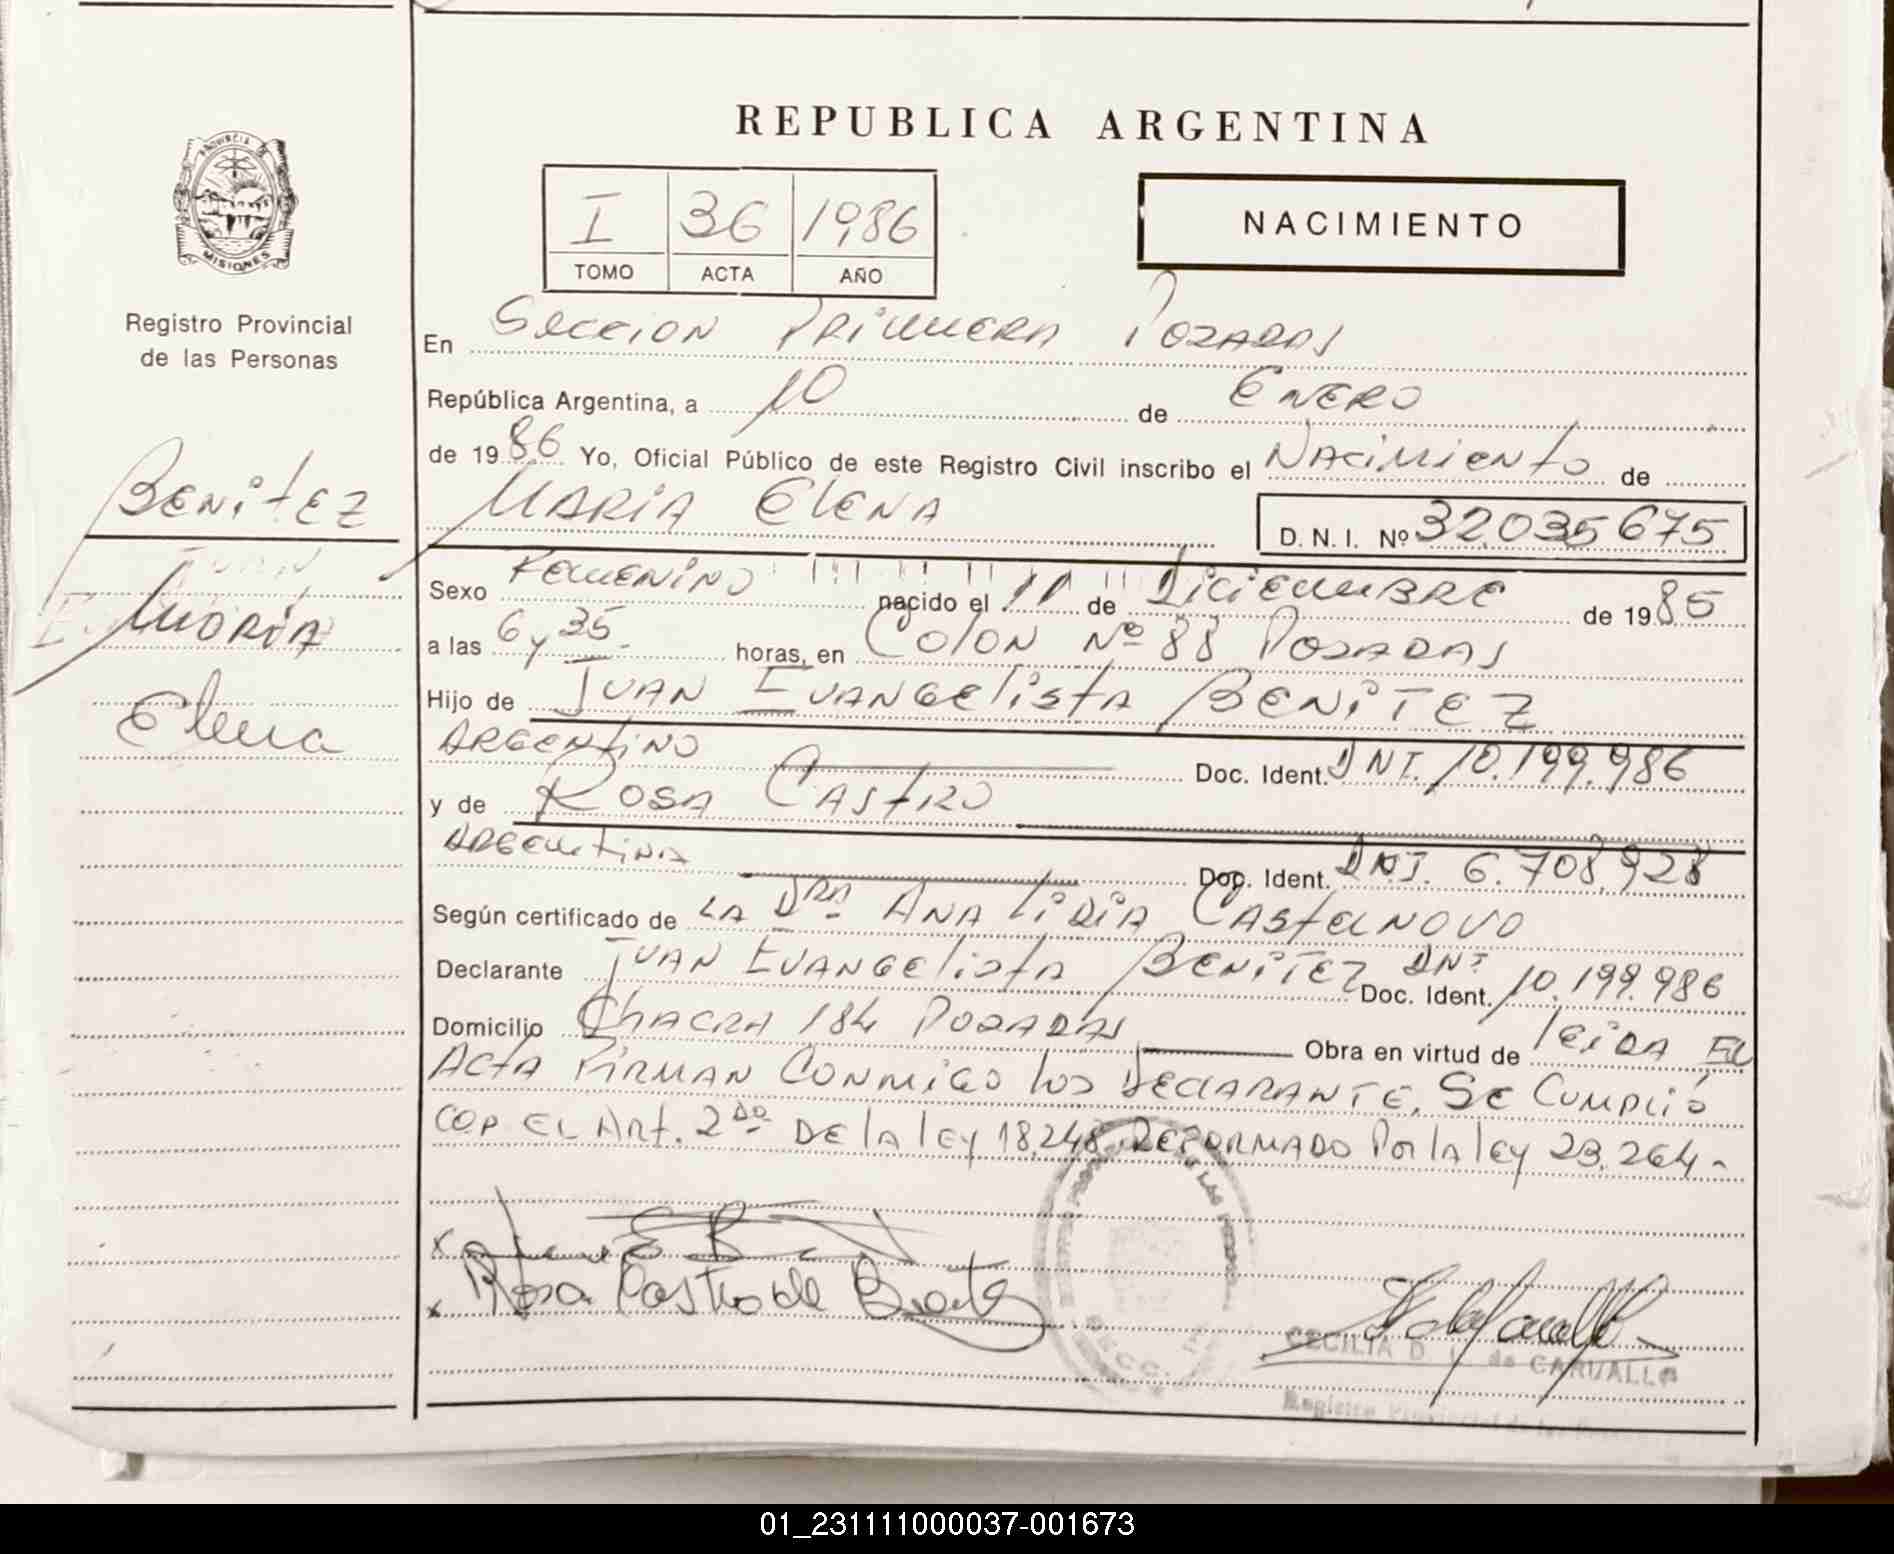 REPUBLICA ARGENTINA
PROVINCIA DE
MISIONES
Registro Provincial
de las Personas
I 36 1986
TOMO ACTA AÑO
NACIMIENTO
En Seccion Primera Posadas
República Argentina, a 10 de Enero
de 1986 Yo, Oficial Público de este Registro Civil inscribo el Nacimiento de
Maria Elena D. N. I. Nº 32.035675
Benitez
Maria
Elena
Sexo Femenino nacido el 11 de Diciembre de 1985
a las 6 y 35 horas, en Colon Nº 88 Posadas
Hijo de Juan Evangelista Benitez
Argentino Doc. Ident. DNI. 10.199.986
y de Rosa Castro
Argentina Doc. Ident. DNI. 6.708.928
Según certificado de La Dra Ana Lidia Castelnovo
Declarante Juan Evangelista Benitez DNI Doc. Ident. 10.199.986
Domicilio Chacra 184 Posadas Obra en virtud de leida El
Acta Firman Conmigo los Declarante. Se Cumplió
con el Art. 2do de la ley 18.248 Reformado Por la ley 23.264-
x
x Rosa Castro de Benitez
CECILIA D. de CARVALLO
Registro Provincial de las Personas
01_231111000037-001673